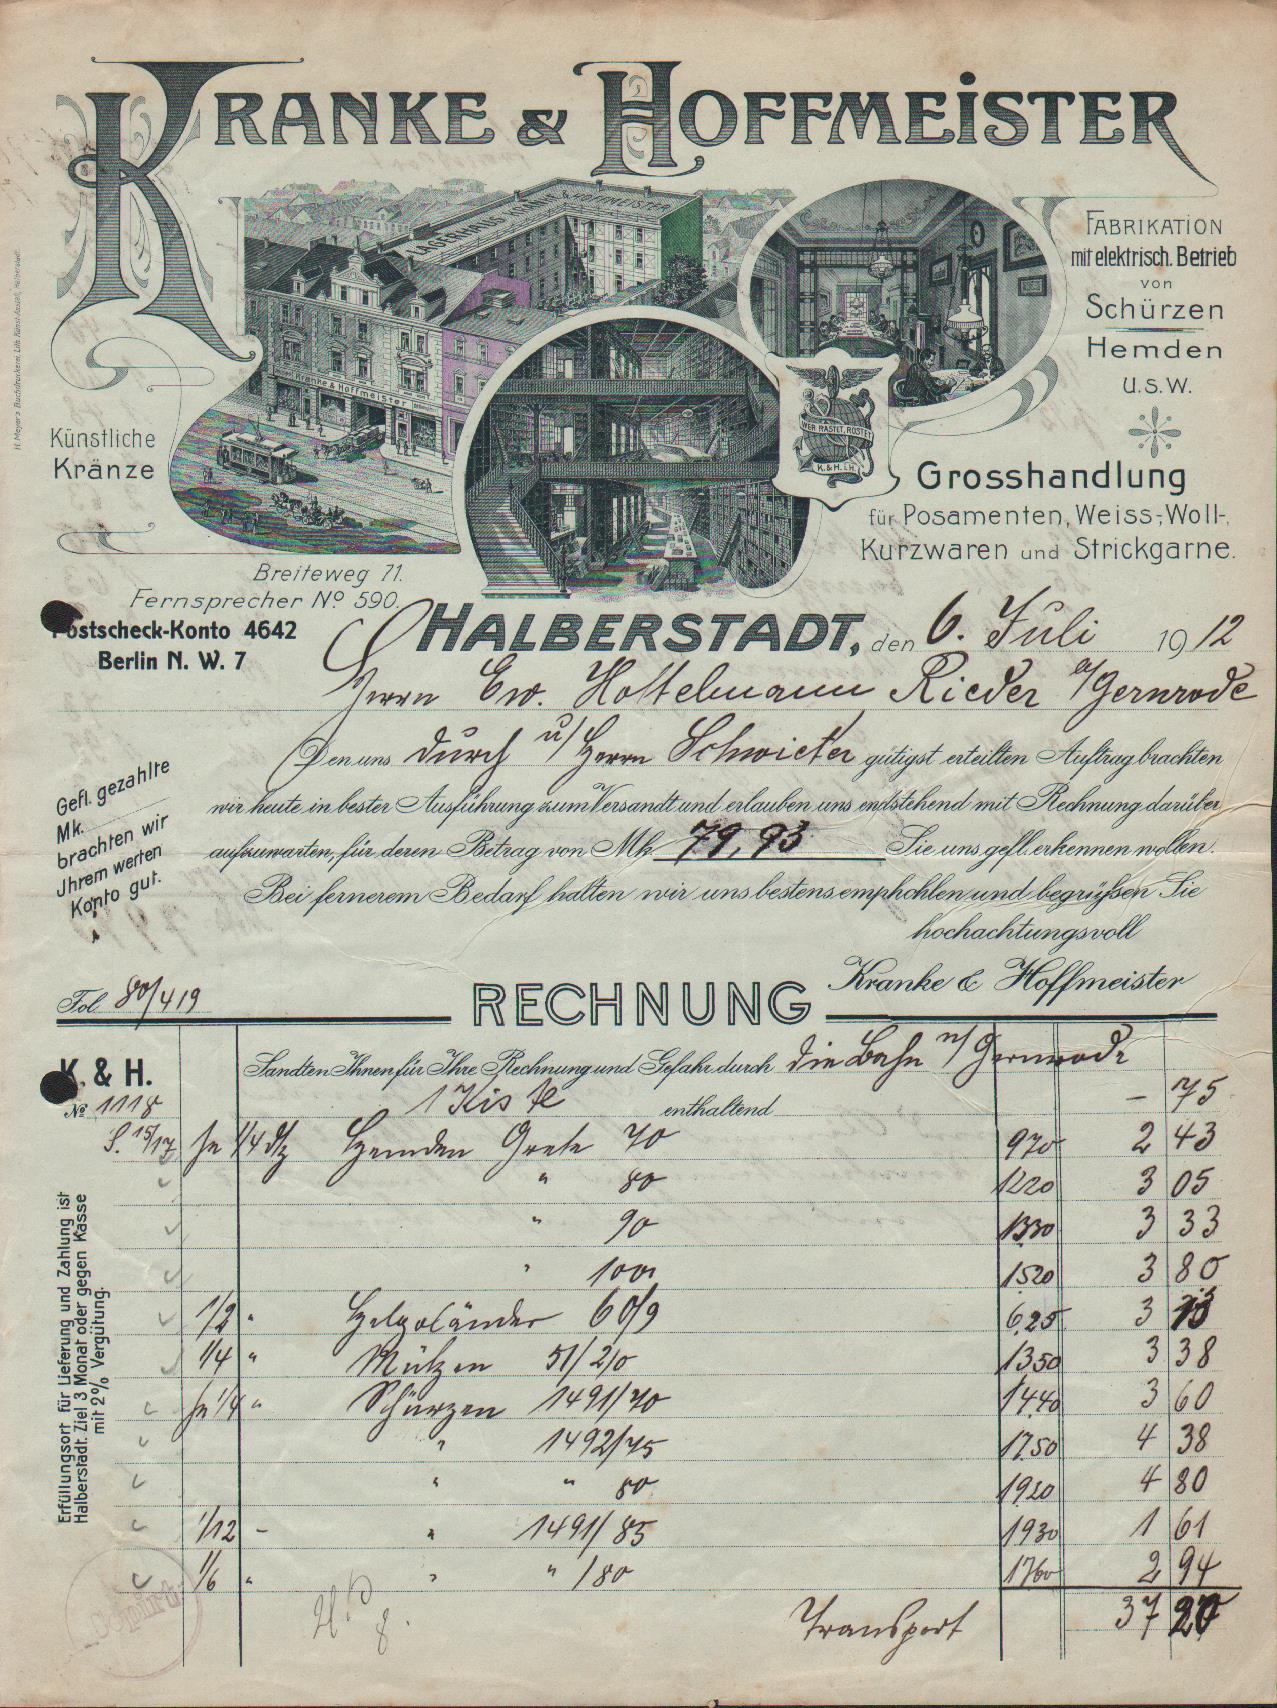 KRANKE & HOFFMEISTER
LAGERHAUS KRANKE & HOFFMEISTER
Kranke & Hoffmeister
WER RASTET, ROSTET
K. & H. i. H.
H. Meyer's Buchdruckerei, Lith. Kunst-Anstalt, Halberstadt.
FABRIKATION
mit elektrisch. Betrieb
von
Schürzen
Hemden
U.S.W.
Künstliche
Kränze
Grosshandlung
für Posamenten, Weiss-, Woll-,
Kurzwaren und Strickgarne.
Breiteweg 71.
Fernsprecher No 590.
Postscheck-Konto 4642
Berlin N. W. 7
HALBERSTADT, den 6. Juli 1912
Herrn Ew. Hottelmann Rieder a/Gernrode
Den uns durch u/ Herrn Schwieter gütigst erteilten Auftrag brachten
wir heute in bester Ausführung zum Versandt und erlauben uns endstehend mit Rechnung darüber
aufzuwarten, für deren Betrag von Mk. 79,93 Sie uns gefl. erkennen wollen.
Bei fernerem Bedarf halten wir uns bestens empfohlen und begrüßen Sie
hochachtungsvoll
Kranke & Hoffmeister
Gefl. gezahlte
Mk.
brachten wir
Jhrem werten
Konto gut.
Fol. 80/419
RECHNUNG
K. & H.
No 1118
Sandten Ihnen für Ihre Rechnung und Gefahr durch die Bahn n/ Gernrode
1 Kiste enthaltend – 75
S. 15/17 je 1/4 dtz Hemden Grete 70 970 2 43
" 80 1220 3 05
" 90 1330 3 33
" 100 1520 3 80
1/2 " Helgoländer 60/9 6.25 3 13
1/4 " Mützen 51/20 1350 3 38
je 1/4 " Schürzen 1491/70 14.40 3 60
" 1492/75 17.50 4 38
" " 80 1920 4 80
1/12 – " 1491/85 1930 1 61
1/6 " " " /80 1760 2 94
Transport 37 20
Erfüllungsort für Lieferung und Zahlung ist
Halberstadt. Ziel 3 Monat oder gegen Kasse
mit 2% Vergütung.